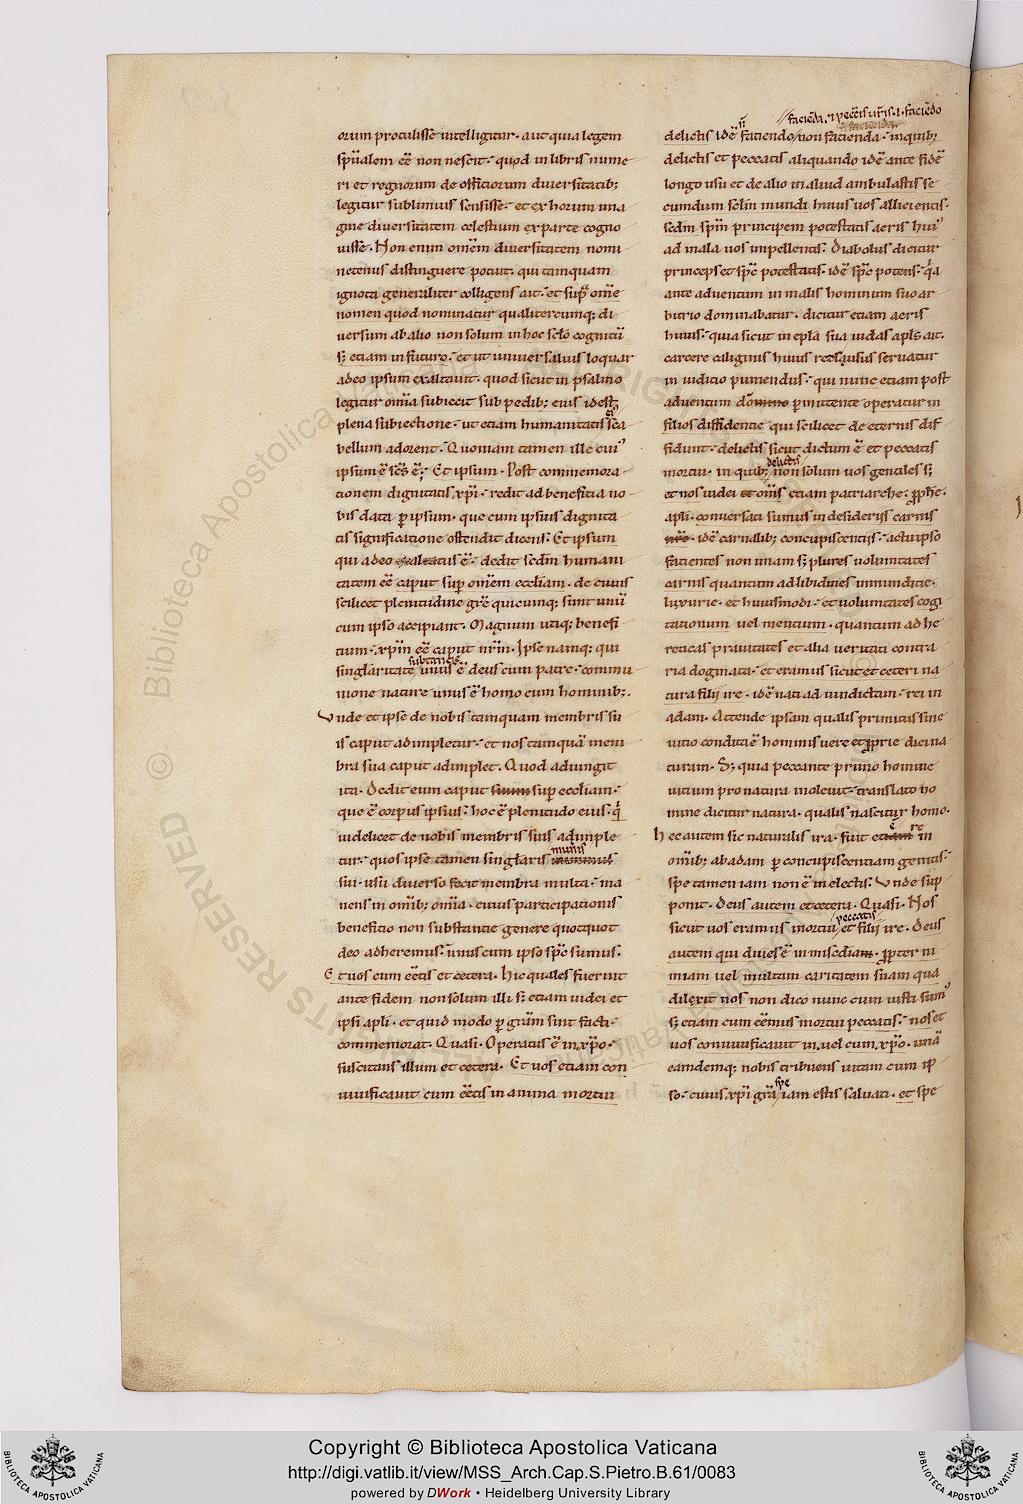 orum proculisse intelligitur. aut quia legem
sp̄ualem eē non nescit. quod in libris nume
ri et regnorum de officiorum diuersitatib;
legitur sublimius sensisse. et ex horum ima
gine diuersitatem celestium ex parte cogno
uisse. Non enim om̄em diuersitatem nomi
netenus distinguere potuit. qui tamquam
ignota generaliter colligens ait. et sup̄ om̄e
nomen quod nominatur qualitercumq; di
uersum ab alio non solum in hoc sc̄lo cognitū
s; etiam in futuro. et ut uniuersalius loquar
adeo ipsum exaltauit. quod sicut in psalmo
legitur om̄ia subiecit sub pedib; eius idest
plena subiectione. ut etiam humanitatis ei' sca
bellum adorent. Quoniam tamen ille cui'
ipsum ē sc̄s ē; Et ipsum. Post commemora
tionem dignitatis xp̄i. redit ad beneficia no
bis data p ipsum. que cum ipsius dignita
tis significatione ostendit dicens. Et ipsum
qui adeo exaltatus ē. dedit sc̄dm humani
tatem eē caput sup̄ om̄em eccl̄iam. de cuius
scilicet plenitudine gr̄e quicumq; sunt unū
cum ipso accipiant. Magnum utiq; benefi
cium. xp̄m eē caput nr̄m. Ipse namq; qui
singlaritate substancie unus ē deus cum patre. commu
nione nature unus ē homo cum hominib;.
Vnde et ipse de nobis tamquam membris su
is caput adimpletur. et nos tamquā mem
bra sua caput adimplet. Quod adiungit
ita. Dedit eum caput suum sup eccl̄iam.
que ē corpus ipsius. hoc ē plenitudo eius. q̄
uidelicet de nobis membris suis adimple
tur. quos ipse tamen singl̄aris
sui usu diuerso fecit membra multa. ma
nens in om̄ib; om̄ia. cuius participationis
beneficio non substantie genere quotquot
deo adheremus. unus cum ipso sp̄c sumus.
Et uos cum eētis et cetera. Hic quales fuerint
ante fidem non solum illi s; etiam iudei et
ipsi apl̄i. et quid modo p gr̄am sint facti.
commemorat. Quasi. Operatus ē in xp̄o.
suscitans illum et cetera. Et uos etiam con
uiuificauit cum eētis in anima mortui
facie̅da. et pecc̄tis ur̄is. i. facie̅do
delictis idē faciendo non facienda. in quib;
delictis et peccatis aliquando idē ante fidē
longo usu et de alio in aliud ambulastis se
cundum sc̄lm mundi huius uos allicientis.
sc̄dm sp̄m principem potestatis aeris hui'
ad mala uos impellentis. Diabolus dicitur
princeps et sp̄c potestatis. idē sp̄c potens. q̄a
ante aduentum in malis hominum suo ar
bitrio dominabatur. dicitur etiam aeris
huius. quia sicut in epl̄a sua iudas apl̄s ait.
carcere caliginis huius retrusus seruatur
in iudicio puniendus. qui nunc etiam post
aduentum domino pmittente operatur in
filios diffidentie qui scilicet de eternis dif
fidunt. delictis sicut dictum ē et peccatis
mortui. in quib; delictis non solum uos gentiles s;
et nos iudei et om̄s etiam patriarche. pph̄e.
apl̄i. conuersati sumus in desideriis carnis
nr̄e. idē carnalib; concupiscentiis. actu ipso
facientes non unam s; plures uoluntates
carnis quantum ad libidines inmunditie.
luxurie. et huiusmodi. et uoluntates cogi
tationum uel mentium. quantum ad he
reticas prauitates et alia ueritati contra
ria dogmata. et eramus sicut et ceteri na
tura filii ire. idē nati ad uindictam. rei in
adam. Attende ipsam qualis primitus sine
uitio conditi ē hominis uere et pprie dici na
turam. S; quia peccante primo homine
uitium pro natura inoleuit. translato no
mine dicitur natura. qualis nascitur homo.
Hec autem sic naturalis ira. fuit in
om̄ib; ab adam p concupiscentiam genitis.
spe tamen iam non ē in electis. Vnde sup
ponit. Deus autem et cetera. Quasi. Nos
sicut uos eramus mortui peccatis et filii ire. Deus
autem qui diues ē in misc̄diam. ppter ni
miam uel multam caritatem suam qua
dilexit nos non dico nunc cum iusti sum'
s; etiam cum eēmus mortui peccatis. nos et
uos conuiuificauit in. uel cum xp̄o. unā
eamdemq; nobis tribuens uitam cum ip̄
so. cuius xp̄i gr̄a spe iam estis saluati. et spe
Copyright © Biblioteca Apostolica Vaticana
http://digi.vatlib.it/view/MSS_Arch.Cap.S.Pietro.B.61/0083
powered by DWork • Heidelberg University Library